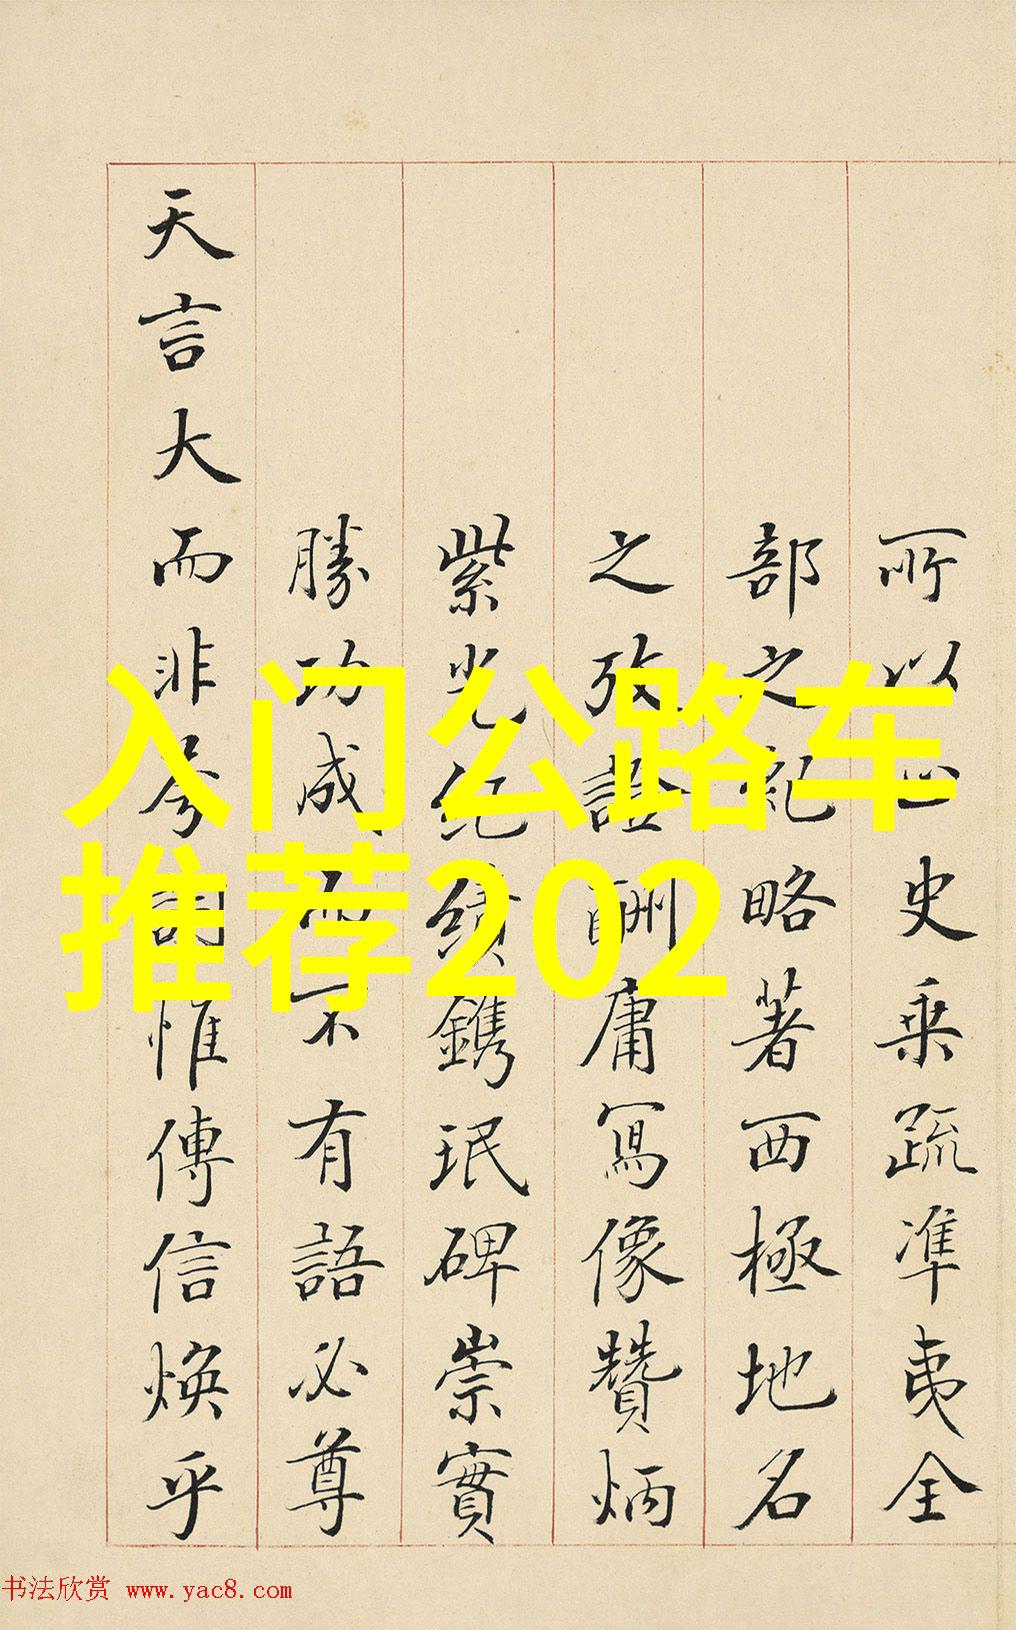 所以一史乗疏準夷全
部之記略著西極地名
之攷證酬庸寫像贊炳
紫光紀績鐫珉碑崇實
勝功成而不有語必尊
天言大而非夸詞惟傳信煥乎
入门公路车
推荐202
书法欣赏 www.yac8.com